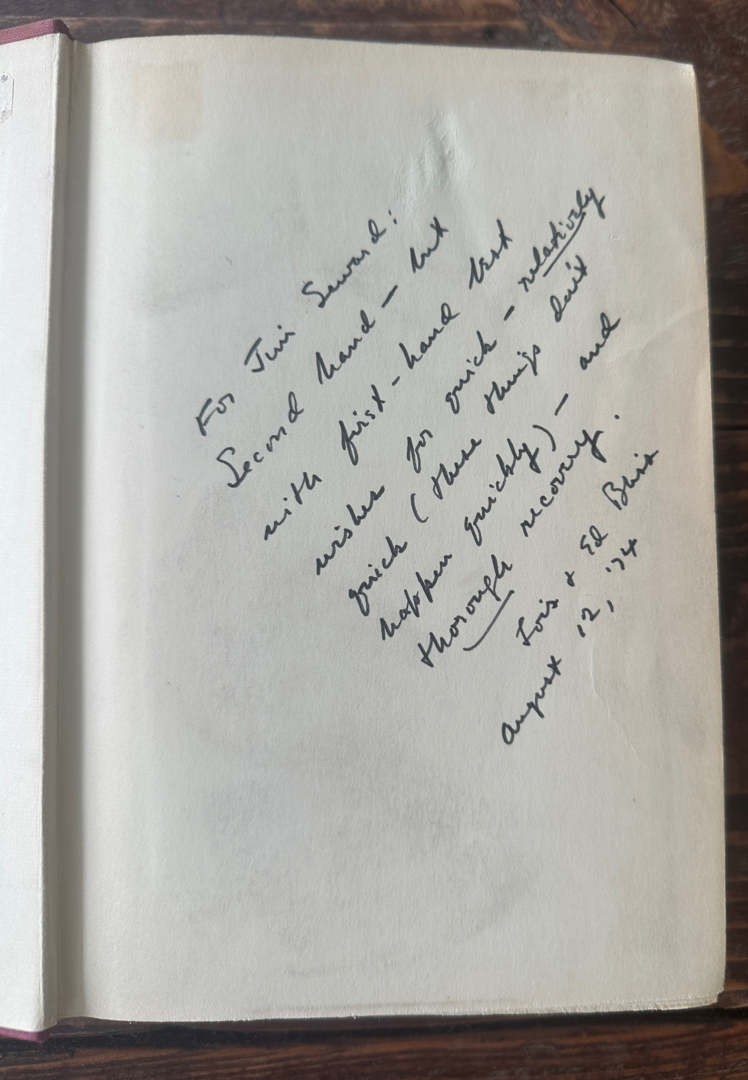 For Jim Seward:
Second hand – but
with first-hand best
wishes for quick – relatively
quick (these things don't
happen quickly) – and
thorough recovery.
Lois + Ed Bliss
August 12, '74